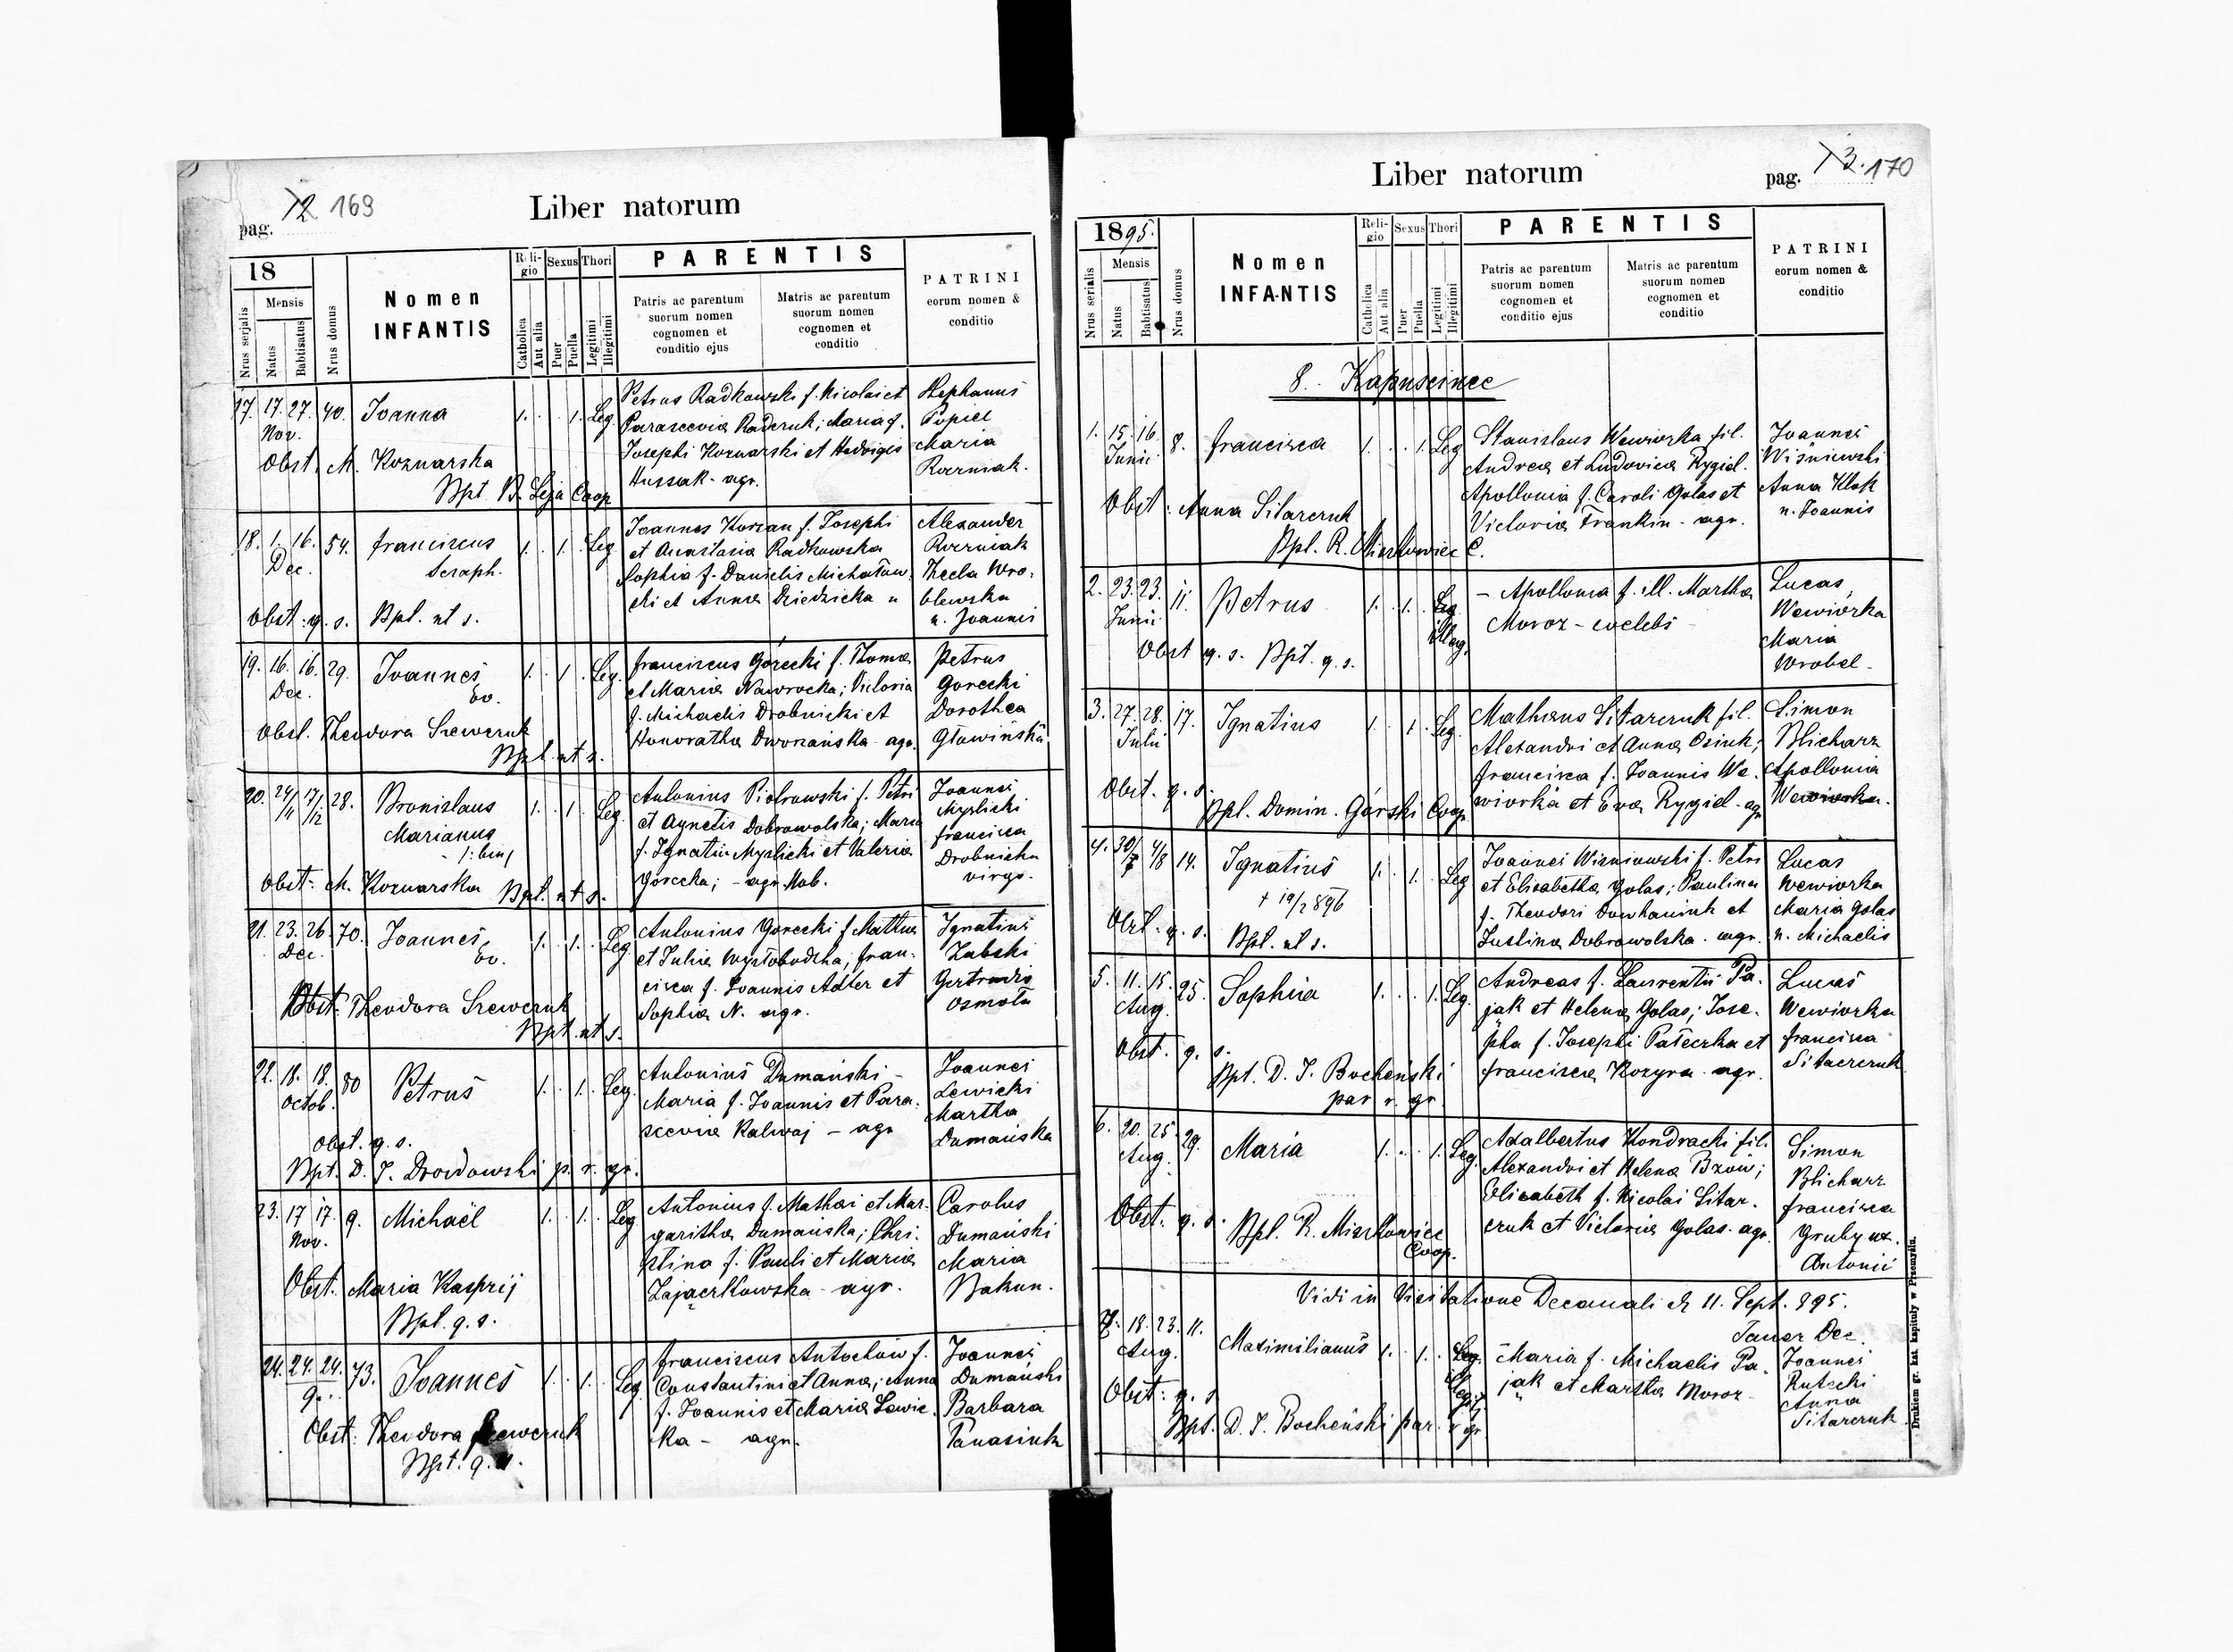 pag. 72 169
Liber natorum
18
Nrus serjalis
Mensis
Natus
Babtisatus
Nrus domus
Nomen
INFANTIS
Religio
Catholica
Aut alia
Sexus
Puer
Puella
Thori
Legitimi
Illegitimi
PARENTIS
Patris ac parentum
suorum nomen
cognomen et
conditio ejus
Matris ac parentum
suorum nomen
cognomen et
conditio
PATRINI
eorum nomen &
conditio
17. 17. 27. 40. Joanna 1. 1. Leg. Petrus Radkowski f. Nicolai et
Nov.
Parascevia Raderuk; Maria f.
Josephi Koznarski et Hedvigis
Hussak - agr.
Stephanus
Popiel
Maria
Rozrniak.
Obst. M. Koznarska
Bpt. B. Leja Coop
18. 1. 16. 54. Franciscus 1. 1. Leg. Joannes Korzan f. Josephi
Dec. Seraph.
et Anastasia Radkowska
Sophia f. Danielis Michałow-
ski et Anna Dziedzicka "
Alexander
Rozrniak
Thecla Wro-
blewska
u. Joannis
Obst. q. s. Bpt. ut s.
19. 16. 16. 29. Joannes 1. 1. Leg. Franciscus Górecki f. Thoma
Dec. Ev.
et Maria Nawrocka; Victoria
f. Michaelis Drobnicki et
Honoratha Dworzańska - agr.
Petrus
Gorecki
Dorothea
Gławińska
Obst. Theodora Szewczuk
Bpt. ut s.
20. 24/11 17/12 28. Bronislaus 1. 1. Leg. Antonius Piotrowski f. Petri
Marianus
/: bin/
et Agnetis Dobrowolska; Maria
f. Ignatii Myslicki et Valeria
Gorecka; - agr. Nob.
Joannes
Myslicki
Francisca
Drobnicka
virgo.
Obst. M. Koznarska Bpt. ut s.
21. 23. 26. 70. Joannes 1. 1. Leg. Antonius Gorecki f. Mathia
Dec. Ev.
et Julia Wysłobodzka; Fran-
cisca f. Joannis Adler et
Sophia N. agr.
Ignatius
Zubski
Gertrudis
Osmoła
Obst. Theodora Szewczuk
Bpt. ut s.
22. 18. 18. 80 Petrus 1. 1. Leg. Antonius Dumański -
Octob.
Maria f. Joannis et Para-
scevia Kalwaj - agr
Joannes
Lewicki
Martha
Dumańska
Obst. q. s.
Bpt. D. J. Drozdowski p. r. gr.
23. 17 17. 9. Michaël 1. 1. Leg. Antonius f. Mathæi et Mar-
Nov.
garitha Dumańska; Chri-
stina f. Pauli et Maria
Zajączkowska - agr.
Carolus
Dumański
Maria
Bakun.
Obst. Maria Kasprij
Bpt. q. s.
24. 24. 24. 73. Joannes 1. 1. Leg Franciscus Antochów f.
9.
Constantini et Anna; Anna
f. Joannis et Maria Lewic-
ka - agr.
Joannes
Dumański
Barbara
Panasiuk
Obst. Theodora Szewczuk
Bpt. q. s.
Liber natorum
pag. 73. 170
1895.
Nrus serialis
Mensis
Natus
Babtisatus
Nrus domus
Nomen
INFANTIS
Religio
Catholica
Aut alia
Sexus
Puer
Puella
Thori
Legitimi
Illegitimi
PARENTIS
Patris ac parentum
suorum nomen
cognomen et
conditio ejus
Matris ac parentum
suorum nomen
cognomen et
conditio
PATRINI
eorum nomen &
conditio
8. Kapuscince
1. 15. 16. 8. Francisca 1. 1. Leg Stanislaus Wewiorka fil.
Junii
Andrea et Ludovica Rygiel.
Apollonia f. Caroli Golas et
Victoria Frankin - agr.
Joannes
Wiśniewski
Anna Klok
u. Joannis
Obst. Anna Sitarczuk
Bpt. R. Miszkowiec C.
2. 23. 23. 11. Petrus 1. 1. Leg illeg. - Apollonia f. ill. Martha
Junii
Moroz - coelebs -
Lucas
Wewiorka
Maria
Wrobel -
Obst q. s. Bpt. q. s.
3. 27. 28. 17. Ignatius 1. 1. Leg. Mathæus Sitarczuk fil.
Julii
Alexandri et Anna Osiuk;
Francisca f. Joannis We-
wiorka et Eva Rygiel - agr
Simon
Blicharz
Apollonia
Wewiorka.
Obst. q. s.
Bpt. Domin. Górski Coop.
4. 30/7 4/8 14. Ignatius 1. 1. Leg Joannes Wisniowski f. Petri
+ 19/2 896
et Elisabetha Golas; Paulina
f. Theodori Dowhaniuk et
Justina Dobrowolska - agr.
Lucas
Wewiorka
Maria Golas
u. Michaelis
Obst. q. s. Bpt. ut s.
5. 11. 15. 25. Sophia 1. 1. Leg. Andreas f. Laurentii Pa-
Aug.
jak et Helena Golas; Jose-
pha f. Josephi Pałeczka et
Francisca Kozyra agr.
Lucas
Wewiorka
Francisca
Sitarczuk
Obst. q. s.
Bpt. D. J. Bocheński
par r. gr.
6. 20. 25. 29. Maria 1. 1. Leg. Adalbertus Kondracki fil.
Aug.
Alexandri et Helena Bzow;
Elisabeth f. Nicolai Sitar-
czuk et Victoria Golas - agr.
Simon
Blicharz
Francisca
Gruby ux.
Antonii
Obst. q. s. Bpt. R. Miszkowiec
Coop.
Vidi in Visitatione Decanali d. 11. Sept. 895.
Dec.
7. 18. 23. 11. Maximilianus 1. 1. Leg. illegit. Maria f. Michaelis Pa-
Aug.
jak et Martha Moroz -
Joannes
Rutecki
Anna
Sitarczuk
Obst: q. s
Bpt. D. J. Bocheński par. r gr.
Drukiem gr. kat. kapituły w Przemyślu.